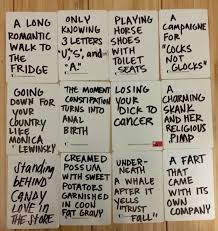 A LONG
ROMANTIC
WALK TO
THE
FRIDGE
ONLY
KNOWING
3 LETTERS
"U","S", AND
"A"
PLAYING
HORSE
SHOES
WITH
TOILET
SEATS
A
CAMPAIGNE
FOR
"COCKS
NOT
GLOCKS"
GOING
DOWN FOR
YOUR
COUNTRY
LIKE
MONICA
LEWINSKY
THE MOMENT
CONSTIPATION
TURNS INTO
ANAL
BIRTH
LOSING
YOUR
DICK TO
CANCER
A
CHARMING
SKANK
AND HER
RELIGIOUS
PIMP
STANDING
BEHIND
CANDY
LOVE IN
THE STORE
CREAMED
POSSUM
WITH SWEET
POTATOES
GARNISHED
IN COON
FAT GRAVY
UNDER-
NEATH
A WHALE
AFTER IT
YELLS
"TRUST
FALL"
A FART
THAT
CAME
WITH ITS
OWN
COMPANY